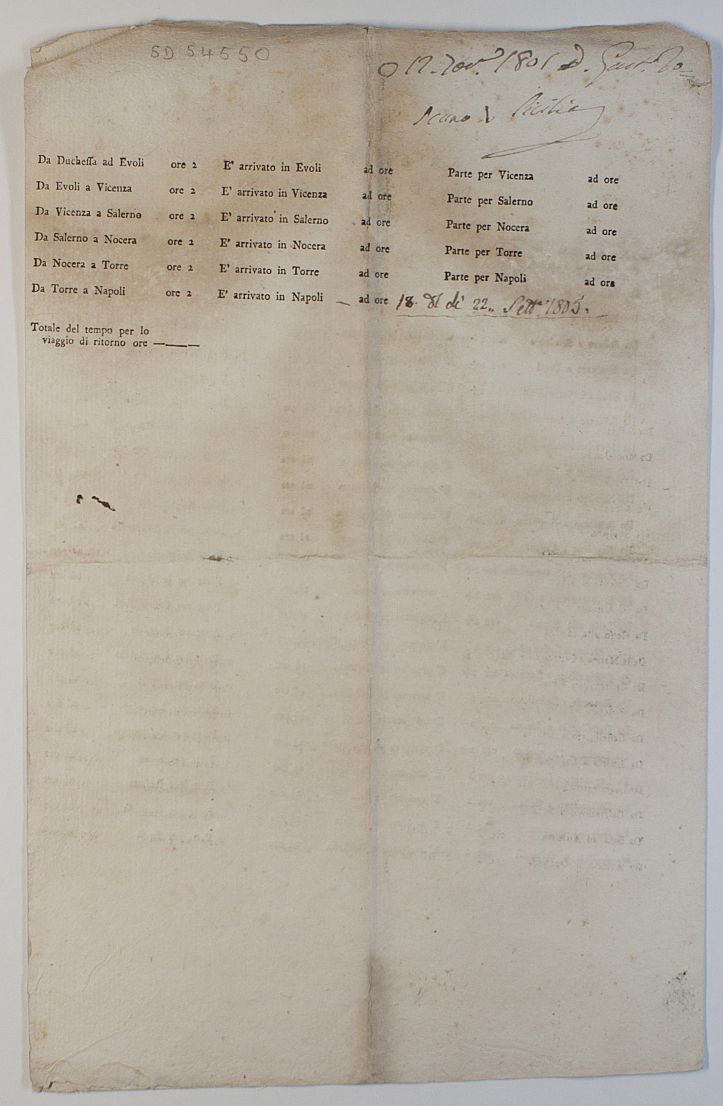 SD 54550
12. Nov.e 1801 D.
Sicilia
Da Ducheſſa ad Evoli ore 2 E' arrivato in Evoli ad ore Parte per Vicenza ad ore
Da Evoli a Vicenza ore 2 E' arrivato in Vicenza ad ore Parte per Salerno ad ore
Da Vicenza a Salerno ore 2 E' arrivato in Salerno ad ore Parte per Nocera ad ore
Da Salerno a Nocera ore 2 E' arrivato in Nocera ad ore Parte per Torre ad ore
Da Nocera a Torre ore 2 E' arrivato in Torre ad ore Parte per Napoli ad ore
Da Torre a Napoli ore 2 E' arrivato in Napoli ad ore 18. di 22. Sett.e 1805.
Totale del tempo per lo
viaggio di ritorno ore